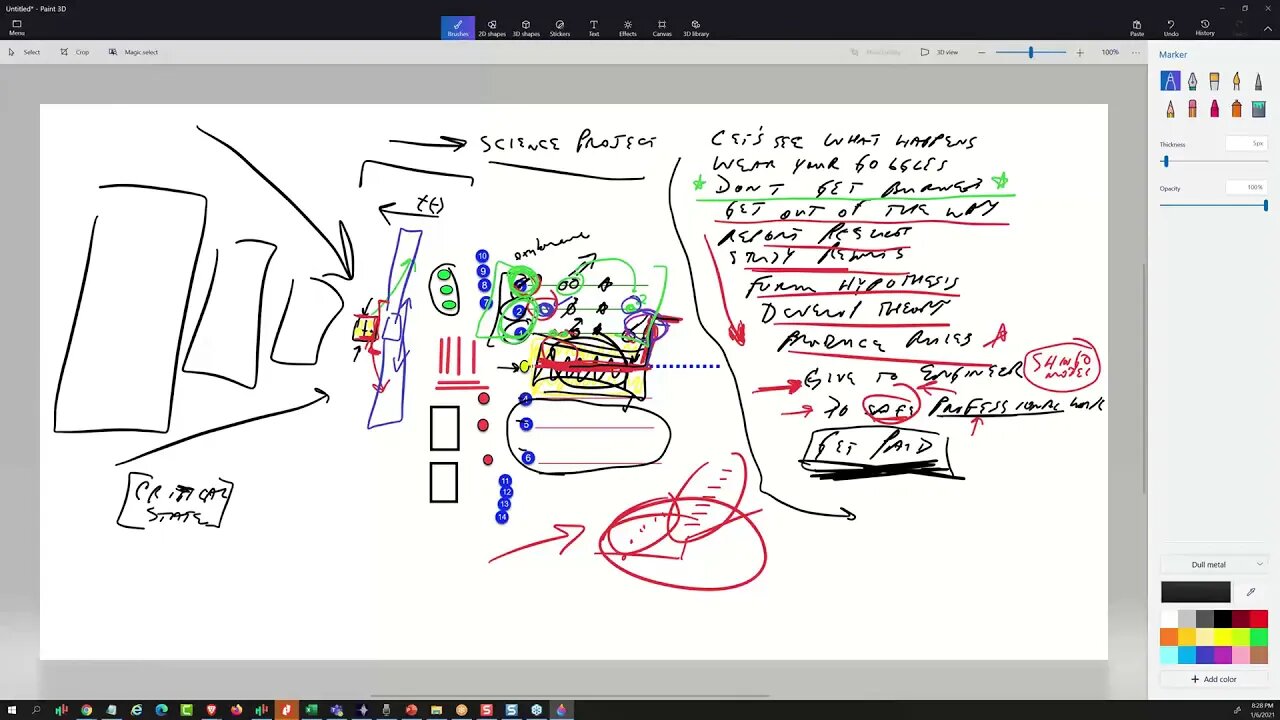 Untitled* - Paint 3D
Menu
Brushes
2D shapes
3D shapes
Stickers
Text
Effects
Canvas
3D library
Paste
Undo
History
Select
Crop
Magic select
3D view
100%
Marker
Thickness
5px
Opacity
100%
Dull metal
Add color
SCIENCE PROJECT
t(-)
10
9
8
7
2
1
4
5
6
11
12
13
14
CRITICAL
STATE
LET'S SEE WHAT HAPPENS
WEAR YOUR GOGGLES
DON'T GET BURNED
GET OUT OF THE WAY
REPORT REQUEST
STUDY RESULTS
FORM HYPOTHESIS
DEVELOP THEORY
PRODUCE RULES
GIVE TO ENGINEER
SHINGO
MODEL
TO PROFESSIONAL WORK
GET PAID
8:28 PM
1/6/2021